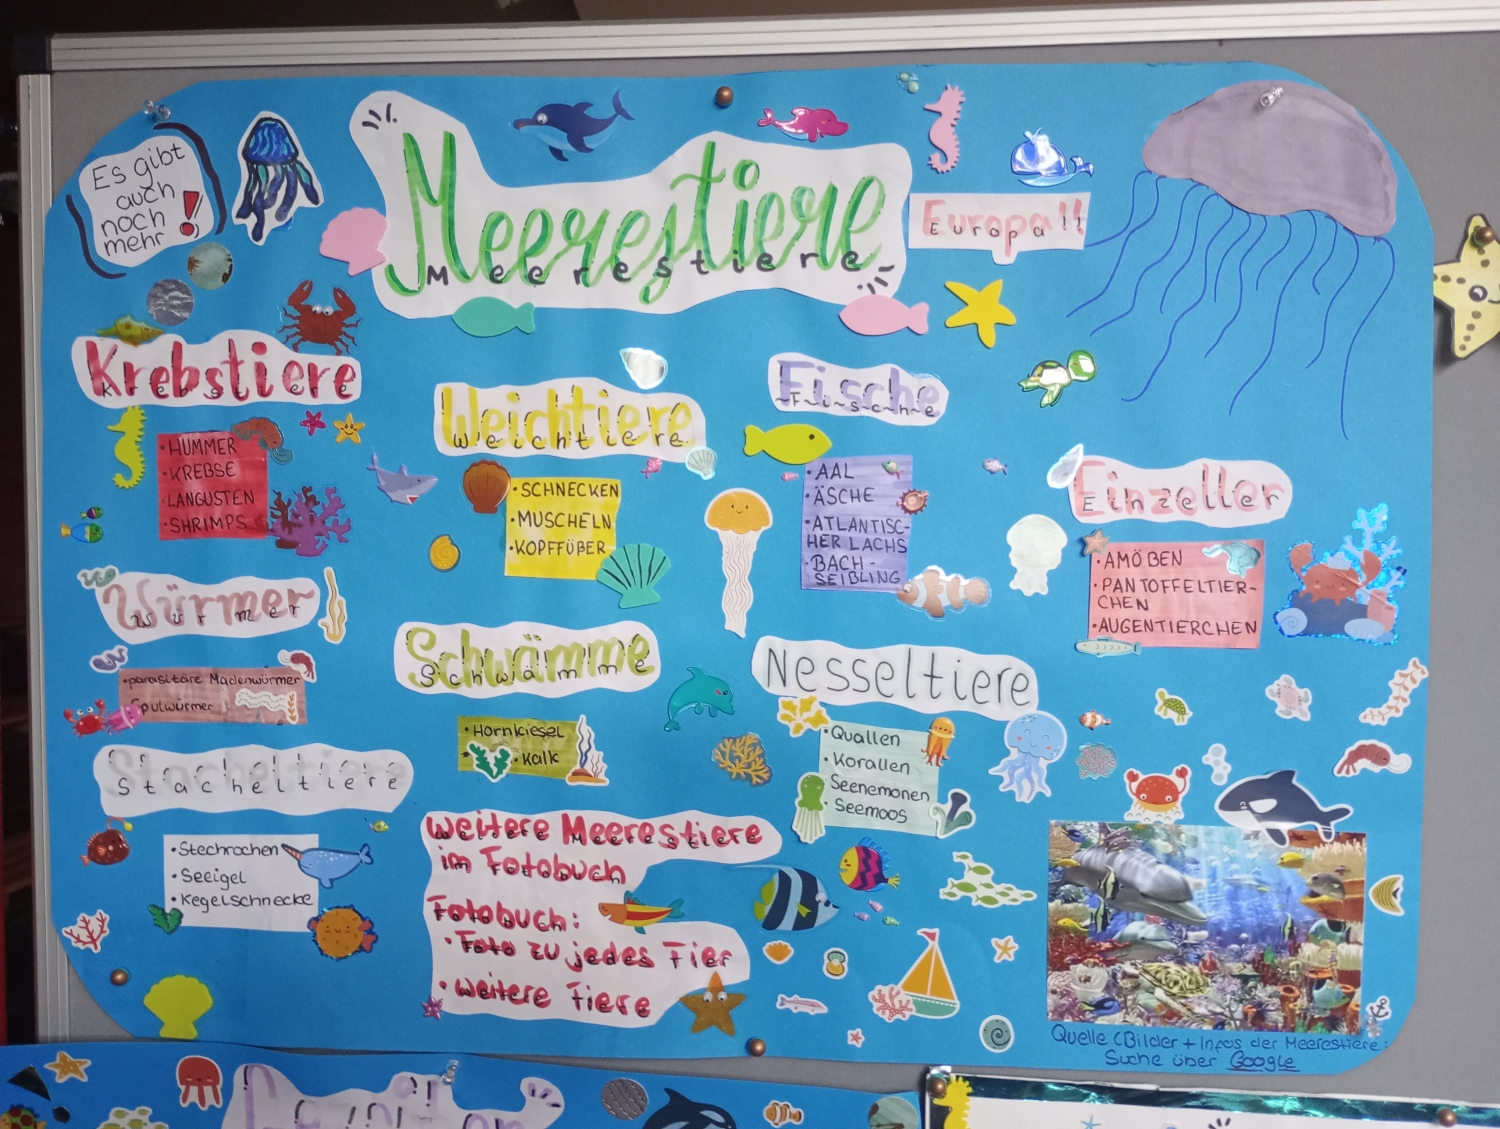 Es gibt
auch
noch
mehr!
Meerestiere
Meerestiere
Europa!!
Europa
Krebstiere
Krebstiere
• HUMMER
• KREBSE
• LANGUSTEN
• SHRIMPS
Weichtiere
Weichtiere
• SCHNECKEN
• MUSCHELN
• KOPFFÜßER
Fische
~F~i~s~c~h~e
• AAL
• ÄSCHE
• ATLANTISC-
HER LACHS
• BACH-
SEIBLING
Einzeller
Einzeller
• AMÖBEN
• PANTOFFELTIER-
CHEN
• AUGENTIERCHEN
Würmer
Würmer
• parasitäre Madenwürmer
Spulwürmer
Schwämme
Schwämme
• Hornkiesel
• Kalk
Nesseltiere
• Quallen
• Korallen
Seenemonen
• Seemoos
Stacheltiere
Stacheltiere
• Stechrochen
• Seeigel
• Kegelschnecke
weitere Meerestiere
im Fotobuch
Fotobuch:
• Foto zu jedes Tier
• weitere Tiere
Quelle (Bilder + Infos der Meerestiere:
Suche über Google